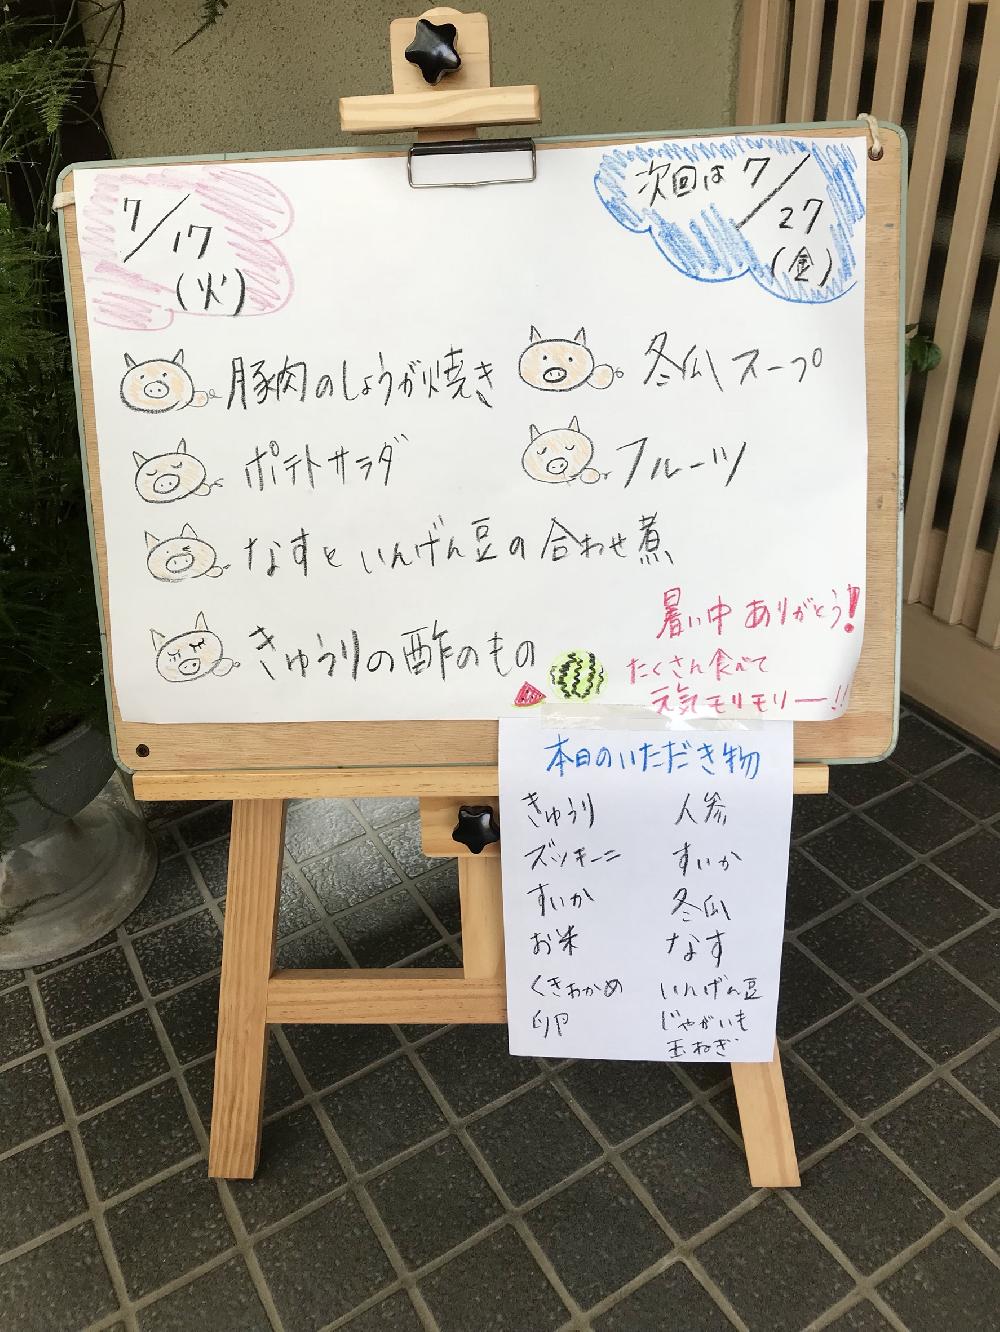 7/17
(火)
次回は7/27
(金)
豚肉のしょうが焼き
冬瓜スープ
ポテトサラダ
フルーツ
なすといんげん豆の合わせ煮
きゅうりの酢のもの
暑い中ありがとう!
たくさん食べて
元気モリモリー!!
本日のいただき物
きゅうり
人参
ズッキーニ
すいか
すいか
冬瓜
お米
なす
くきわかめ
いんげん豆
卵
じゃがいも
玉ねぎ